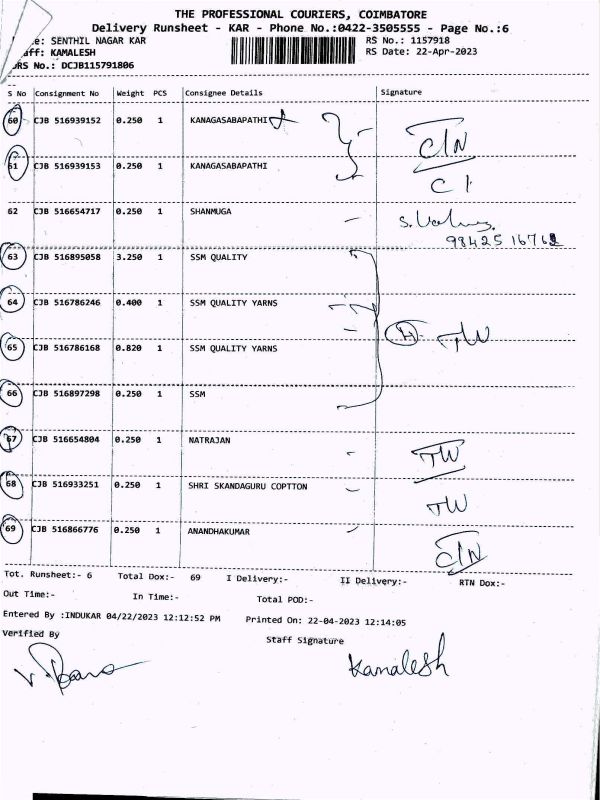 THE PROFESSIONAL COURIERS, COIMBATORE
Delivery Runsheet - KAR - Phone No.:0422-3505555 - Page No.:6
e: SENTHIL NAGAR KAR RS No.: 1157918
aff: KAMALESH RS Date: 22-Apr-2023
DRS No.: DCJB115791806
S No Consignment No Weight PCS Consignee Details Signature
60 CJB 516939152 0.250 1 KANAGASABAPATHI
C/N
61 CJB 516939153 0.250 1 KANAGASABAPATHI
62 CJB 516654717 0.250 1 SHANMUGA
63 CJB 516895058 3.250 1 SSM QUALITY
64 CJB 516786246 0.400 1 SSM QUALITY YARNS
TW
65 CJB 516786168 0.820 1 SSM QUALITY YARNS
66 CJB 516897298 0.250 1 SSM
67 CJB 516654804 0.250 1 NATRAJAN TW
68 CJB 516933251 0.250 1 SHRI SKANDAGURU COPTTON TW
69 CJB 516866776 0.250 1 ANANDHAKUMAR C/N
Tot. Runsheet:- 6 Total Dox:- 69 I Delivery:- II Delivery:- RTN Dox:-
Out Time:- In Time:- Total POD:-
Entered By :INDUKAR 04/22/2023 12:12:52 PM Printed On: 22-04-2023 12:14:05
Verified By Staff Signature
Kamalesh